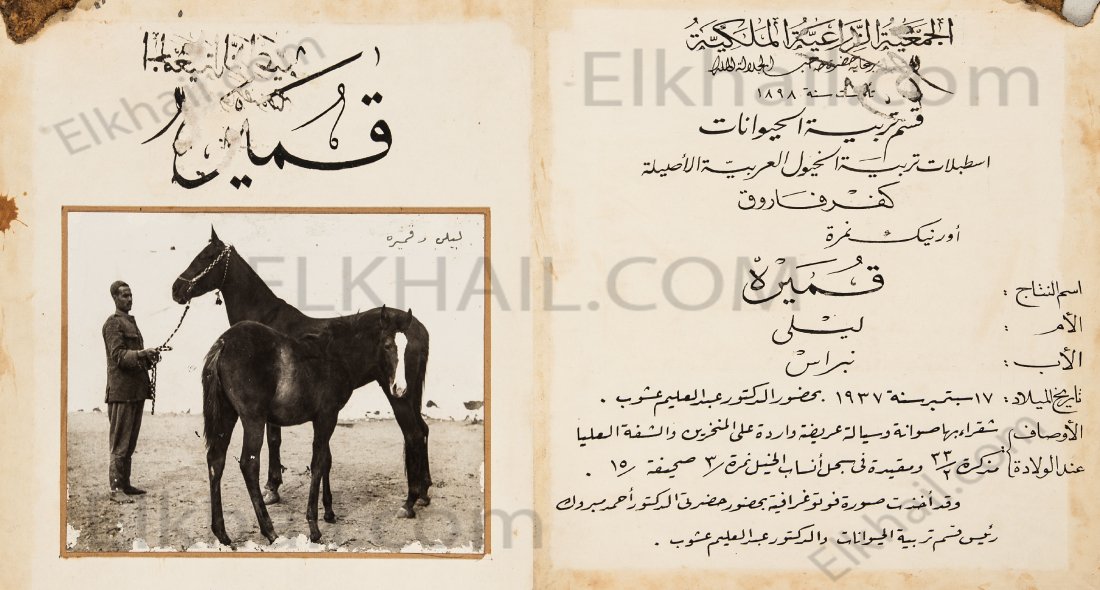 قميرة
ليلى وقميره
الجمعية الزراعية الملكية
سنة ١٨٩٨
قسم تربية الحيوانات
اسطبلات تربية الخيول العربية الأصيلة
كفر فاروق
أورنيك نمرة
اسم النتاج : قُميرة
الأم : ليلى
الأب : نبراس
تاريخ الميلاد : ١٧ سبتمبر سنة ١٩٣٧ بحضور الدكتور عبد العليم عشوب .
الأوصاف عند الولادة } شقراء بها صوانة وسيالة عريضة واردة على المنخرين والشفة العليا
مذكرة ٣٣/٢ ومقيدة فى سجل أنساب الخيل نمرة /٣ صحيفة /١٥ .
وقد أخذت صورة فوتوغرافية بحضور حضرتى الدكتور أحمد مبروك
رئيس قسم تربية الحيوانات والدكتور عبد العليم عشوب .
Elkhail.com
Elkhail.com
ELKHAIL.COM
Elkhail.com
Elkhail.com